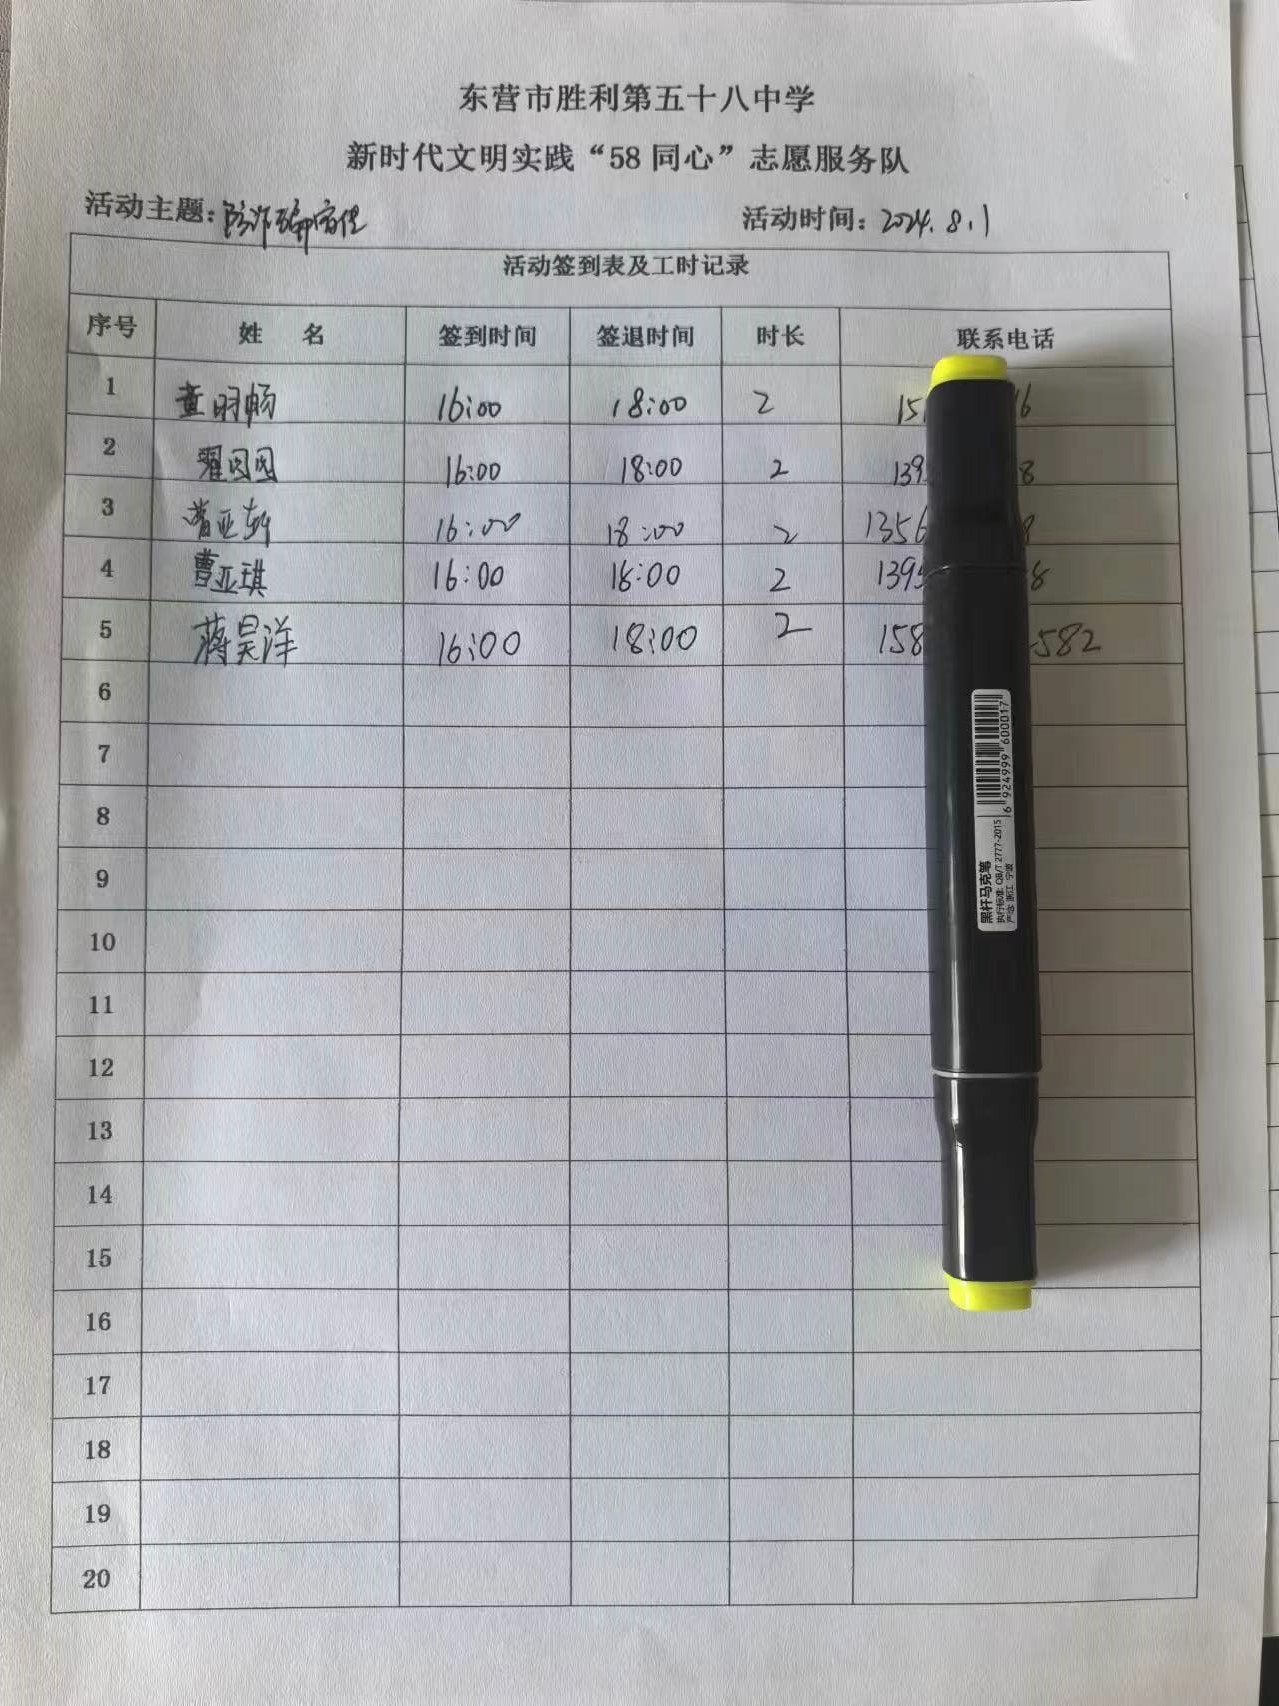 东营市胜利第五十八中学
新时代文明实践“58同心”志愿服务队
活动主题：防诈骗宣传 活动时间：2024.8.1
活动签到表及工时记录
序号 姓 名 签到时间 签退时间 时长 联系电话
1 董羽畅 16:00 18:00 2 15 16
2 翟园园 16:00 18:00 2 139 8
3 亚轩 16:00 18:00 2 1356 8
4 曹亚琪 16:00 18:00 2 1395 8
5 蒋昊洋 16:00 18:00 2 158 582
6
7
8
9
10
11
12
13
14
15
16
17
18
19
20
黑杆马克笔
执行标准: QB/T 2777-2015
产地: 浙江 宁波
6 924999 600017